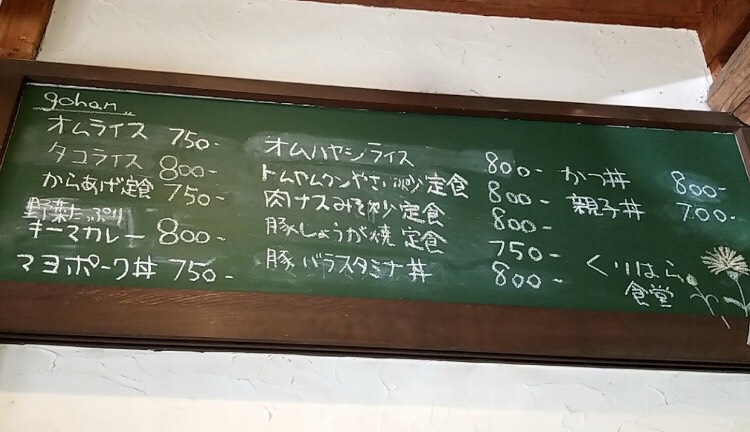 gohan
オムライス 750-
タコライス 800-
からあげ定食 750-
野菜たっぷり
キーマカレー 800-
マヨポーク丼 750-
オムハヤシライス 800-
トムヤムクンやさい炒定食 800-
肉ナスみそ炒定食 800-
豚しょうが焼定食 750-
豚バラスタミナ丼 800-
かつ丼 800-
親子丼 700-
くりはら
食堂